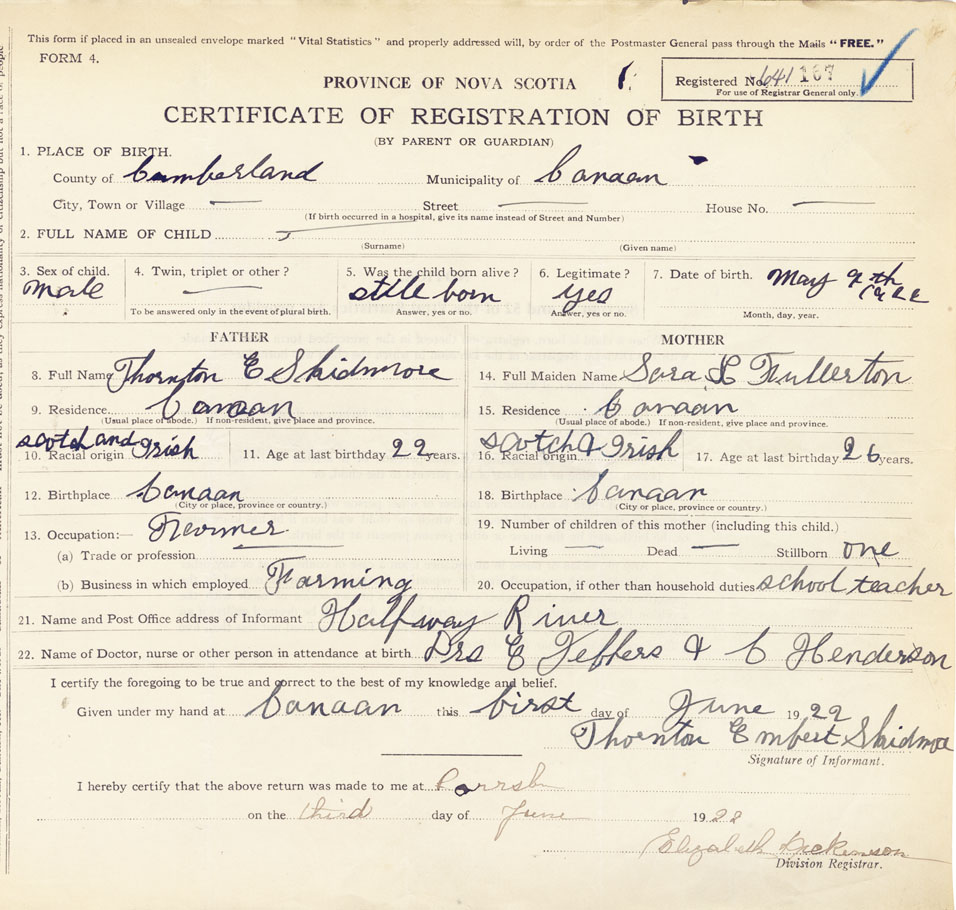 This form if placed in an unsealed envelope marked "Vital Statistics" and properly addressed will, by order of the Postmaster General pass through the Mails "FREE."
FORM 4.
PROVINCE OF NOVA SCOTIA
Registered No. 641 167
For use of Registrar General only.
CERTIFICATE OF REGISTRATION OF BIRTH
(BY PARENT OR GUARDIAN)
1. PLACE OF BIRTH.
County of Cumberland Municipality of Canaan
City, Town or Village — Street — House No. —
(If birth occurred in a hospital, give its name instead of Street and Number)
2. FULL NAME OF CHILD
(Surname) (Given name)
3. Sex of child. 4. Twin, triplet or other? 5. Was the child born alive? 6. Legitimate? 7. Date of birth. May 9th
male — still born yes 1922
To be answered only in the event of plural birth. Answer, yes or no. Answer, yes or no. Month, day, year.
FATHER
8. Full Name Thornton E Skidmore
9. Residence Canaan
(Usual place of abode.) If non-resident, give place and province.
10. Racial origin scotch and Irish 11. Age at last birthday 22 years.
12. Birthplace Canaan
(City or place, province or country.)
13. Occupation:— Farmer
(a) Trade or profession
(b) Business in which employed Farming
MOTHER
14. Full Maiden Name Sara L Fullerton
15. Residence Canaan
(Usual place of abode.) If non-resident, give place and province.
16. Racial origin scotch & Irish 17. Age at last birthday 26 years.
18. Birthplace Canaan
(City or place, province or country.)
19. Number of children of this mother (including this child.)
Living — Dead — Stillborn one
20. Occupation, if other than household duties school teacher
21. Name and Post Office address of Informant Halfway River
22. Name of Doctor, nurse or other person in attendance at birth Drs E Jeffers & C Henderson
I certify the foregoing to be true and correct to the best of my knowledge and belief.
Given under my hand at Canaan this first day of June 1922
Thornton Embert Skidmore
Signature of Informant.
I hereby certify that the above return was made to me at Parrsboro
on the third day of June 1922
Elizabeth Dickenson
Division Registrar.